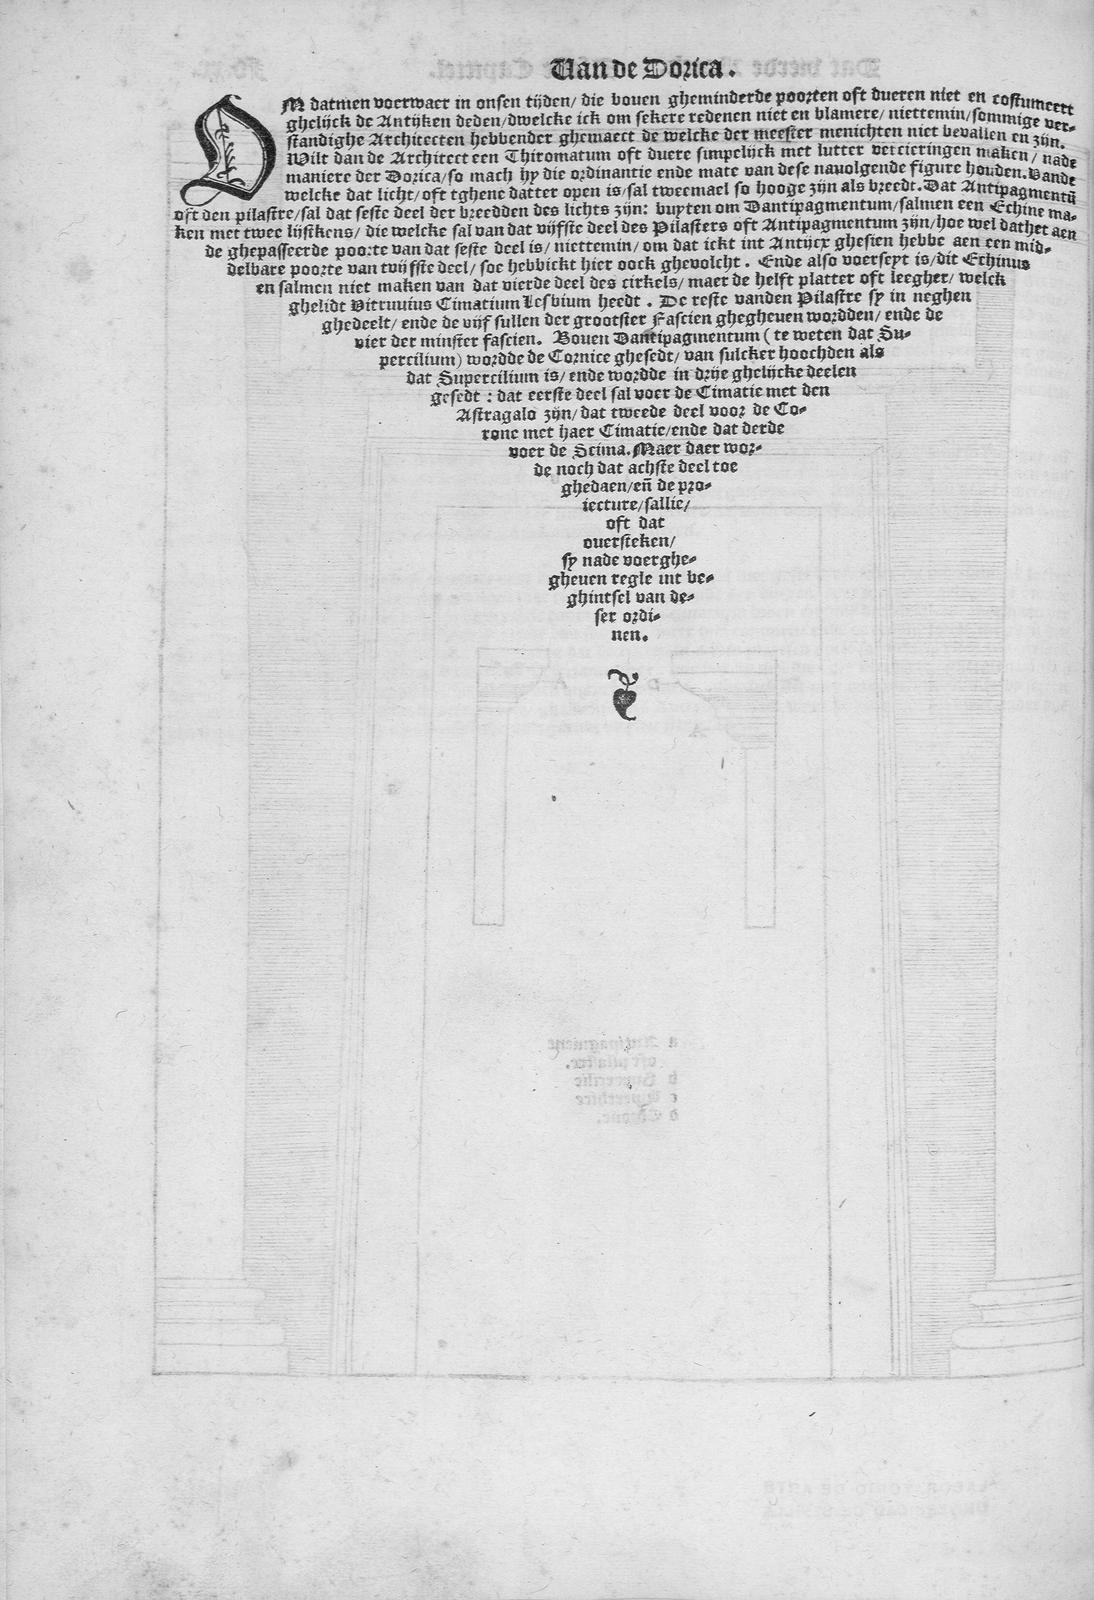 Van de Dorica.
OM datmen voerwaer in onsen tijden/ die bouen gheminderde poorten oft dueren niet en costumeert
ghelijck de Antijken deden/dwelcke ick om sekere redenen niet en blamere/ niettemin/sommige ver-
standighe Architecten hebbender ghemaect de welcke der meester menichten niet bevallen en zijn.
Wilt dan de Architect een Thiromatum oft duere simpelijck met lutter vercieringen maken/ nade
maniere der Dorica/so mach hy die ordinantie ende mate van dese nauolgende figure houden. Vande
welcke dat licht/oft tghene datter open is/sal tweemael so hooge zijn als breedt. Dat Antipagmentū
oft den pilastre/sal dat seste deel der breedden des lichts zijn: buyten om Dantipagmentum/salmen een Echine ma-
ken met twee lijstkens/ die welcke sal van dat vijfste deel des Pilasters oft Antipagmentum zijn/hoe wel dathet aen
de ghepasseerde poorte van dat seste deel is/ niettemin/ om dat ickt int Antijcx ghesien hebbe aen een mid-
delbare poorte van twijfste deel/ soe hebbickt hier oock ghevolcht. Ende also voerseyt is/dit Echinus
en salmen niet maken van dat vierde deel des cirkels/ maer de helft platter oft leegher/ welck
ghelidt Vitruvius Cimatium Lesbium heedt. De reste vanden Pilastre sy in neghen
ghedeelt/ ende de vijf sullen der grootster Fascien ghegheuen wordden/ ende de
vier der minster fascien. Bouen Dantipagmentum (te weten dat Su-
percilium) wordde de Cornice ghesedt/ van sulcker hoochden als
dat Supercilium is/ ende wordde in drije ghelijcke deelen
gesedt: dat eerste deel sal voer de Cimatie met den
Astragalo zijn/ dat tweede deel voor de Co-
rone met haer Cimatie/ende dat derde
voer de Scima. Maer daer wor-
de noch dat achste deel toe
ghedaen/en̄ de pro-
iecture/sallie/
oft dat
ouersteken/
sy nade voerghe-
gheuen regle int be-
ghintsel van de-
ser ordi-
nen.